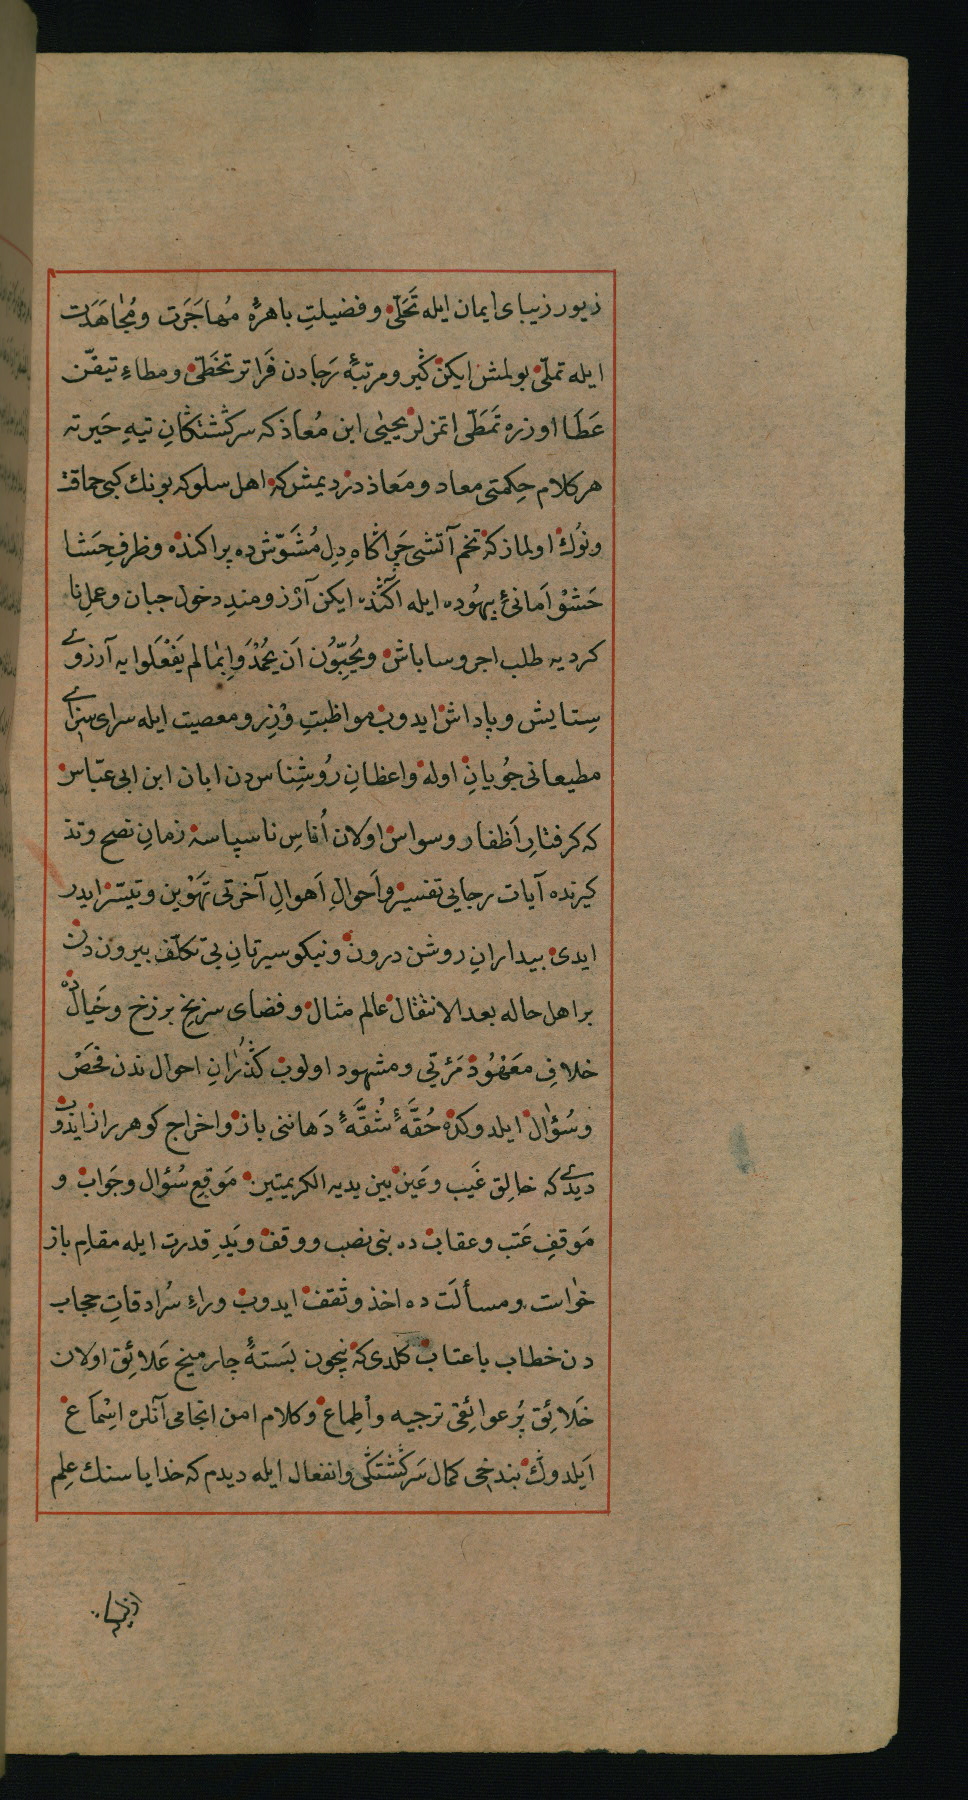 زیور زیبای ایمان ایله تَحَلّی و فضیلتِ باهرهٔ مُهاجَرَت و مُجٰاهَدَت
ایله تملّی بولمش ایکن کیرو مرتبهٔ رَجادن فَراتر تخَطّی و مطاءِ تیقّن
عَطَا اوزره تَمَطّی اتمزلر یحییٰ ابن مُعاذ که سرکشتکانِ تیهِ حَیرته
هر کلام حِکمتی معاد و مَعاذ در دیمش که اهل سلوکه بونك کبی حماقت
و نُوك اولماز که تخم آتشی چراکاهِ دِلِ مُشَوّش ده پراکنده و ظرفِ حَشا
حَشْوْ اَمانیٔ بیهُوده ایله آکَنْده ایکن آرْزومندِ دخولِ جِنان و عملِ نا
کردیه طلب اجر و ساباش وَیُحِبّوُن اَن یُحْمَدُوا بِمٰا لم یَفْعَلوا یه آرزوئے
سِتایش و پاداش ایدوب مواظبتِ وْزِر و معصیت ایله سرای سزائے
مطیعانی جُویانِ اوله واعظانِ رُوشِناس دن ابان ابن ابی عبّاس
که کرفتارِ اَظفار وسواس اولان اُناسِ ناسپاسه زمانِ نصح و تذ
کیرنده آیات رجایی تفسیر و اَحوالِ اَهوالِ آخرتی تَهْوین و تیسّر ایدر
ایدی بیدارانِ روشن درون و نیکو سیرتانِ بی تکلّف بیرون دن
بر اهل حاله بعد الانتقال عالم مثال و فضای سزیخ برزخ و خَیال ده
خلافِ معَهُود مَرْئی و مشهود اولوب کَذَرانِ احوال ندن فحَصْ
و سُؤال ایلدوکده حُقَّهٔ شُقَّهٔ دَهاننی باز و اخراج کوهر راز ایدوب
دیدے که خالِق غَیب و عَین بین یدیه الکریمتین مَوقِعِ سُؤال و جَواب و
مَوقفِ عَتب و عقاب ده بنی نصب و وقف و یَدِ قدرت ایله مقامِ باز
خوٰاست و مسألَت ده اخذ و ثقف ایدوب وراءِ سُرادقاتِ حجاب
دن خطاب باعتاب کلدی که نیچون بَستهٔ چار میخِ عَلائِق اولان
خَلائِقِ پُر عوائِقی ترجیه و اَطِماع و کلام امن انجامی آنلره اسْماَع
اَیلدوڭ بند خی کمال سَرکشتکی و انفعال ایله دیدم که خدایا سنك عِلم